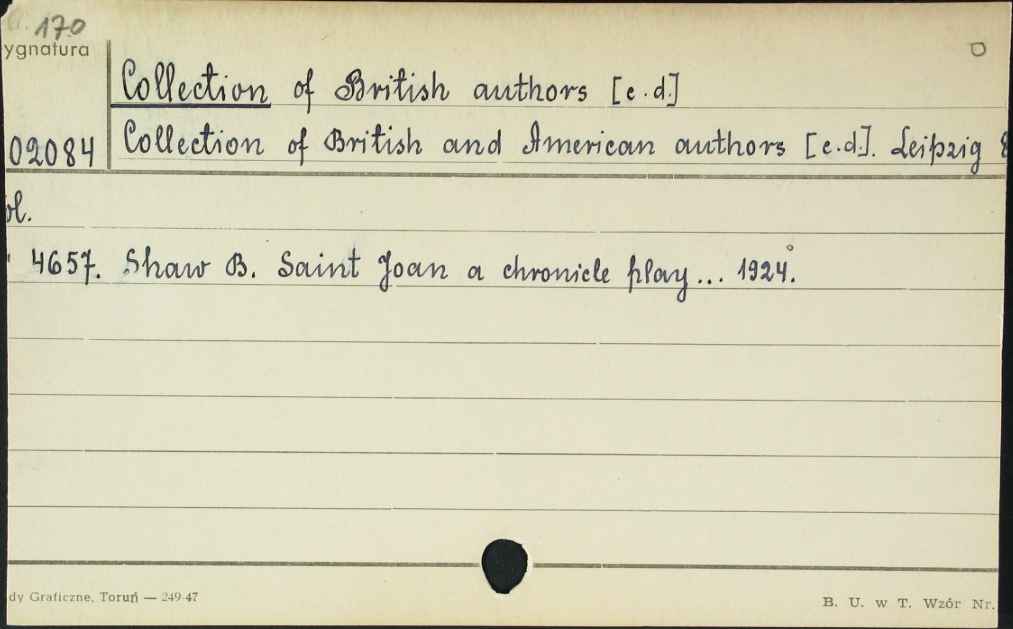 170
ygnatura
Collection of British authors [e.d.]
02084 Collection of British and American authors [e.d.]. Leipzig
ol.
4657. Shaw B. Saint Joan a chronicle play... 1924.
dy Graficzne, Toruń — 249-47
B. U. w T. Wzór Nr.